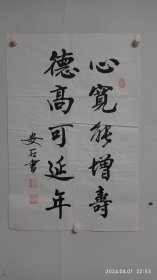 心寬能增壽
德高可延年
安石書
2024.04.01 22:53